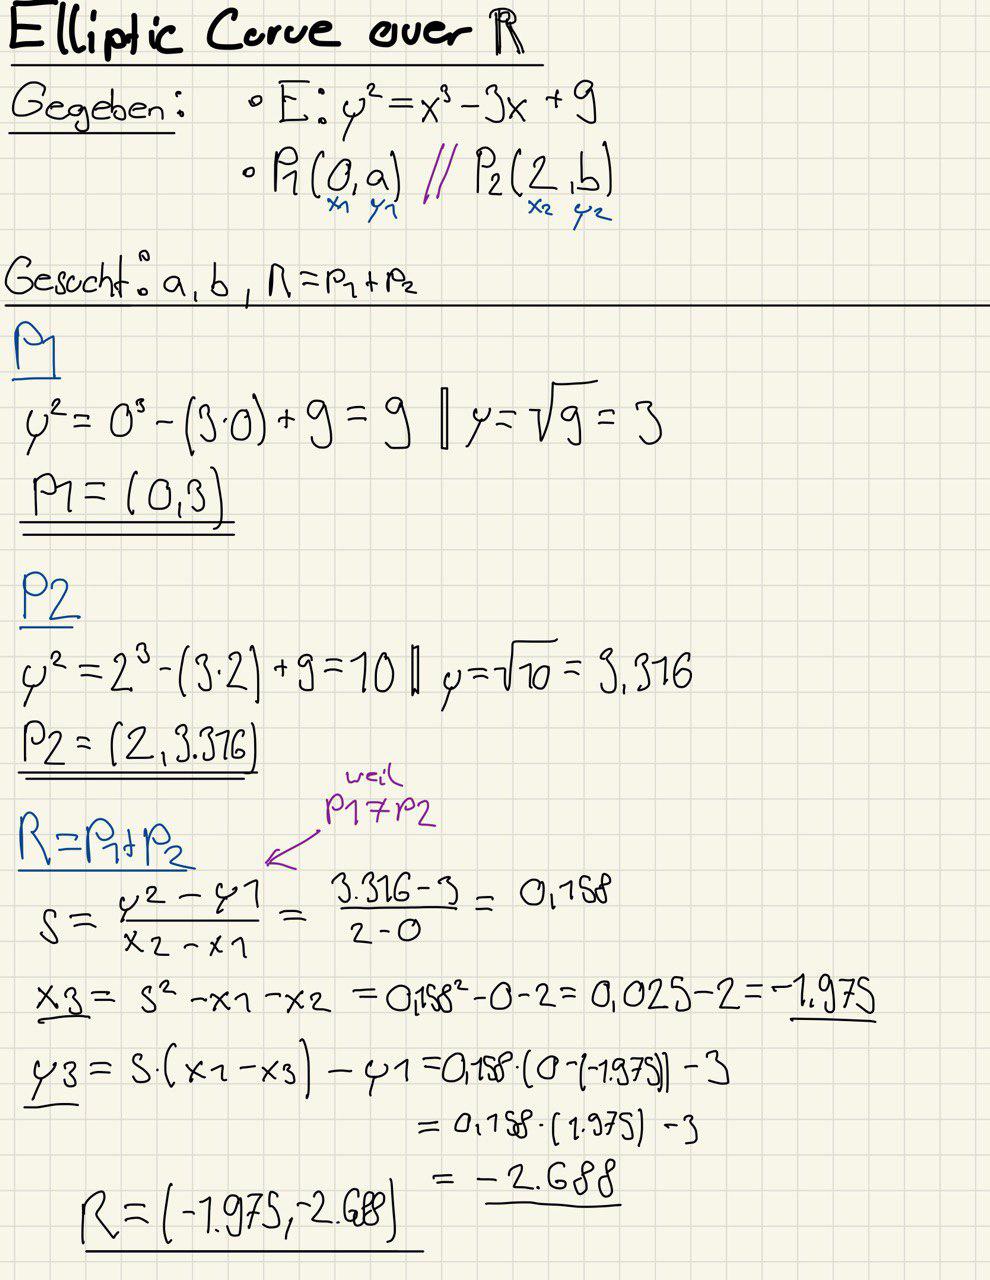 Elliptic Curve over ℝ
Gegeben: • E: y² = x³ - 3x + 9
• P1(0,a) // P2(2,b)
x1 y1 x2 y2
Gesucht: a, b, R = P1 + P2
P1
y² = 0³ - (3·0) + 9 = 9 || y = √9 = 3
P1 = (0,3)
P2
y² = 2³ - (3·2) + 9 = 10 || y = √10 = 3,316
P2 = (2, 3.316)
weil
P1 ≠ P2
R = P1 + P2
s = (y2 - y1)/(x2 - x1) = (3.316 - 3)/(2 - 0) = 0,158
x3 = s² - x1 - x2 = 0,158² - 0 - 2 = 0,025 - 2 = -1.975
y3 = s·(x1 - x3) - y1 = 0,158·(0-(-1.975)) - 3
= 0,158·(1.975) - 3
= -2.688
R = (-1.975, -2.688)